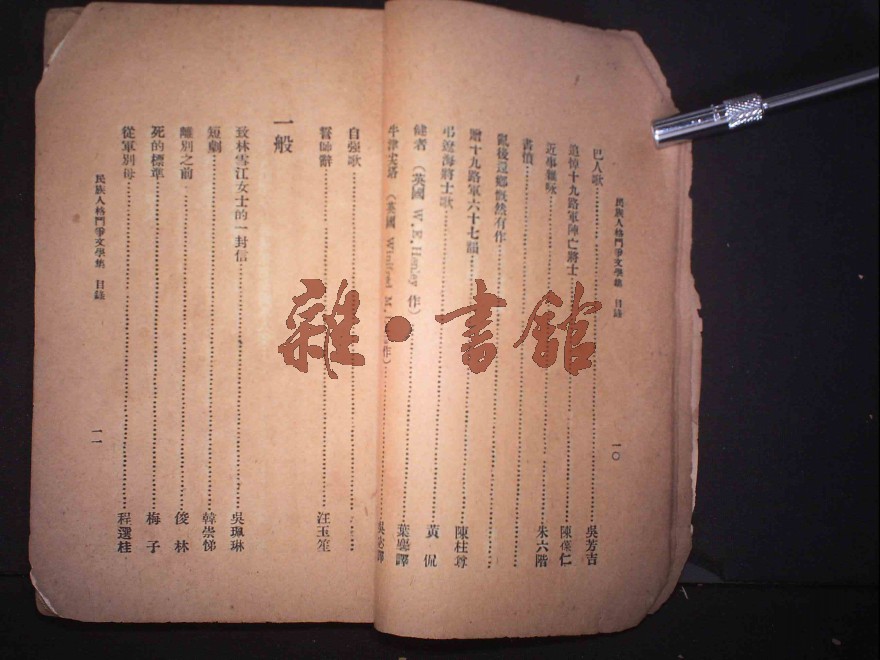 民族人格鬥爭文學集 目錄
一〇
巴人歌 吳芳吉
追悼十九路軍陣亡將士 陳 仁
近事雜詠 朱六階
書憤
亂後還鄉慨然有作
贈十九路軍六十七韻 陳柱尊
弔遼海將士歌 黃侃
健者 (英國 W. E. Henley 作) 葉 譯
牛津尖塔 (英國 Winifred M. 作) 吳宓譯
自強歌
誓師辭 汪玉笙
一般
致林雪江女士的一封信 吳珮琳
短劇 韓崇悌
離別之前 俊林
死的標準 梅子
從軍別母 程選桂
民族人格鬥爭文學集 目錄
一一
雜·書館